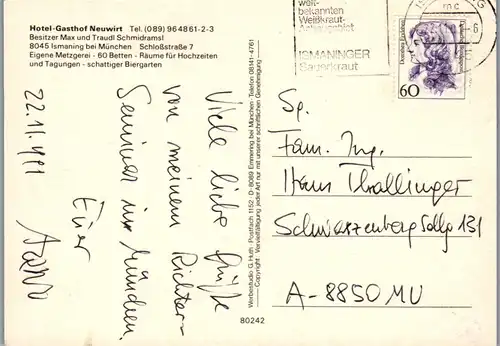 Hotel-Gasthof Neuwirt Tel. (089) 964861-2-3
Besitzer Max und Traudl Schmidramsl
8045 Ismaning bei München Schloßstraße 7
Eigene Metzgerei · 60 Betten - Räume für Hochzeiten
und Tagungen - schattiger Biergarten
22.11.1991
Viele liebe Grüße
von meinem Richter-
Seminar in München.
Euer
Werbestudio G. Huth · Postfach 1152 · D-8089 Emmering bei München · Telefon 08141-4761
Copyright · Vervielfältigung jeder Art nur mit unserer schriftlichen Genehmigung
80242
bekannten
Weißkraut-
ISMANINGER
Sauerkraut
60
Sp.
Fam. Ing.
Hans Thallinger
Schwarzenbergsdlg 131
A-8850 MU